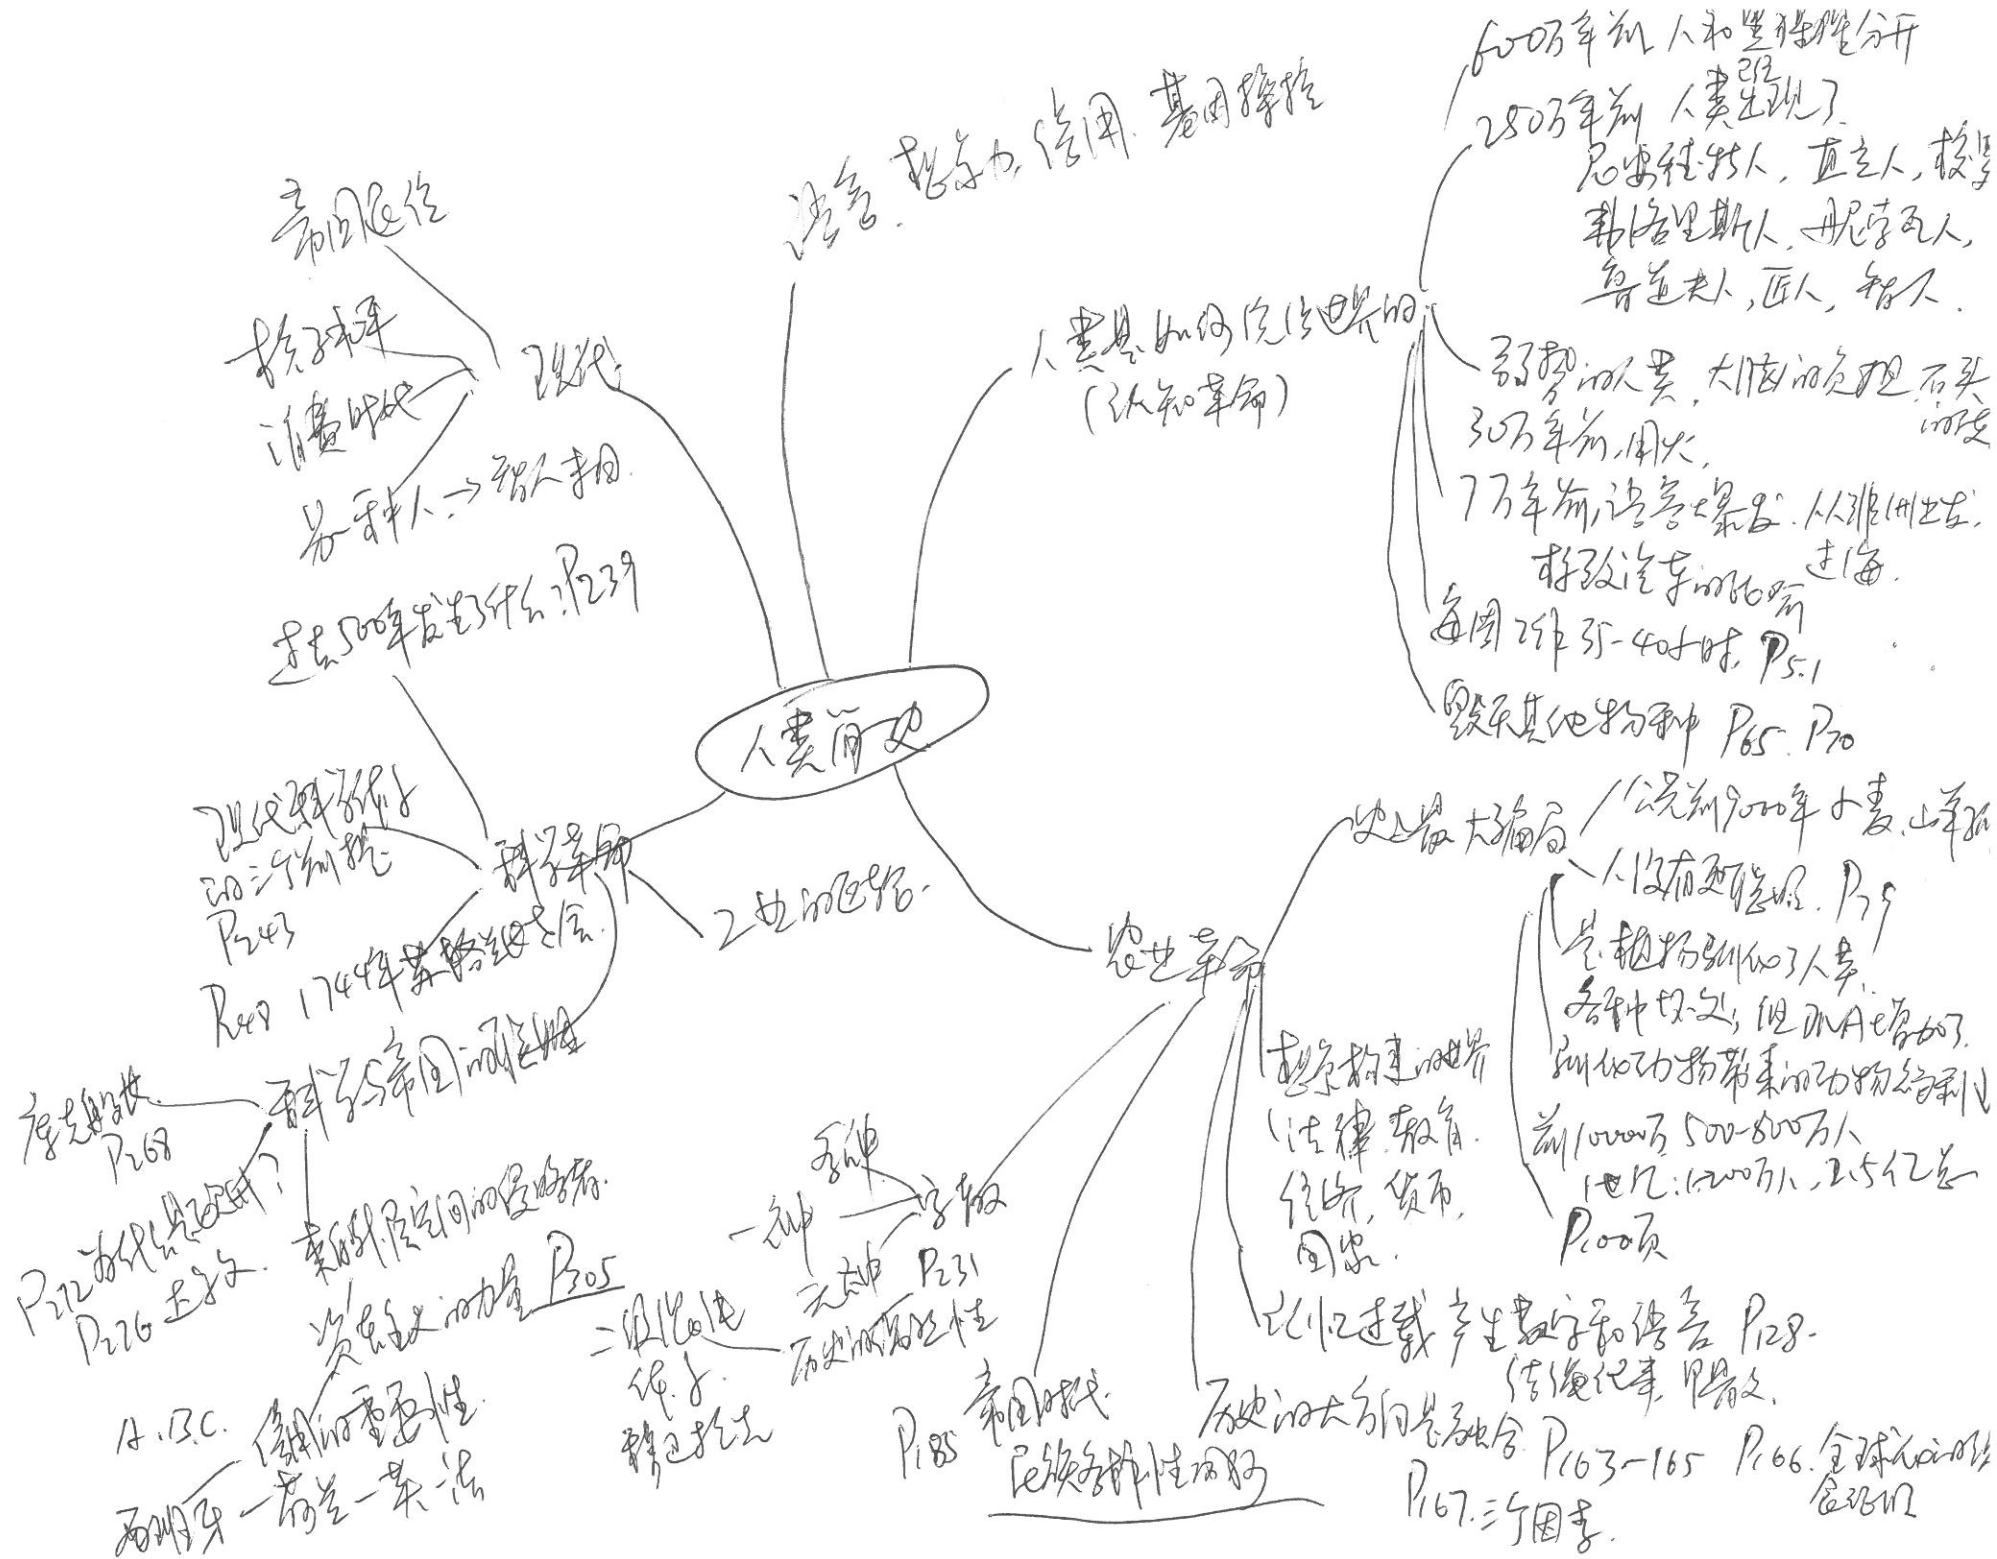 人类简史
语言、想象力、信用、基因操控
人类是如何统治世界的
(认知革命)
600万年前 人和黑猩猩分开
250万年前 人类出现了
尼安德特人，直立人，梭罗
弗洛里斯人、丹尼索瓦人，
鲁道夫人，匠人，智人.
弱势的人类，大脑的负担 石头
30万年前，用火，
7万年前，语言大爆发、从非洲出发，
过海.
汽车的比喻
每周工作35-40小时，P51
毁灭其他物种 P65、P70
农业革命
史上最大骗局
公元前9000年 小麦、山羊
人没有更聪明. P79
是植物驯化了人类，
各种坏处，但DNA增加了.
驯化动物带来的动物
500-800万人
1世纪：
P100页
想象构建的世界
法律 教育.
经济，货币，
国家.
记忆过载 产生数字和语言 P128.
结绳记事，甲骨文，
历史的大方向是融合 P163-165 P166.全球化的
P167.三个因素.
帝国时代
P185
宗教
多神
一神
无神 P231
历史的偶然性
二级混沌
体系.
科学革命
工业的
过去500年发生了什么？P239
现代科学体系
的三个前提
P243
P248 1744年苏格兰
科学与帝国的联姻
库克船长
P268
P272 为什么是欧洲？
P276
来自外层空间的侵略者.
资本主义的力量 P305
信用的重要性.
A.B.C.
西班牙—荷兰—英—法
现代
帝国退位
核子和平
消费时代
另一种人 → 智人末日.